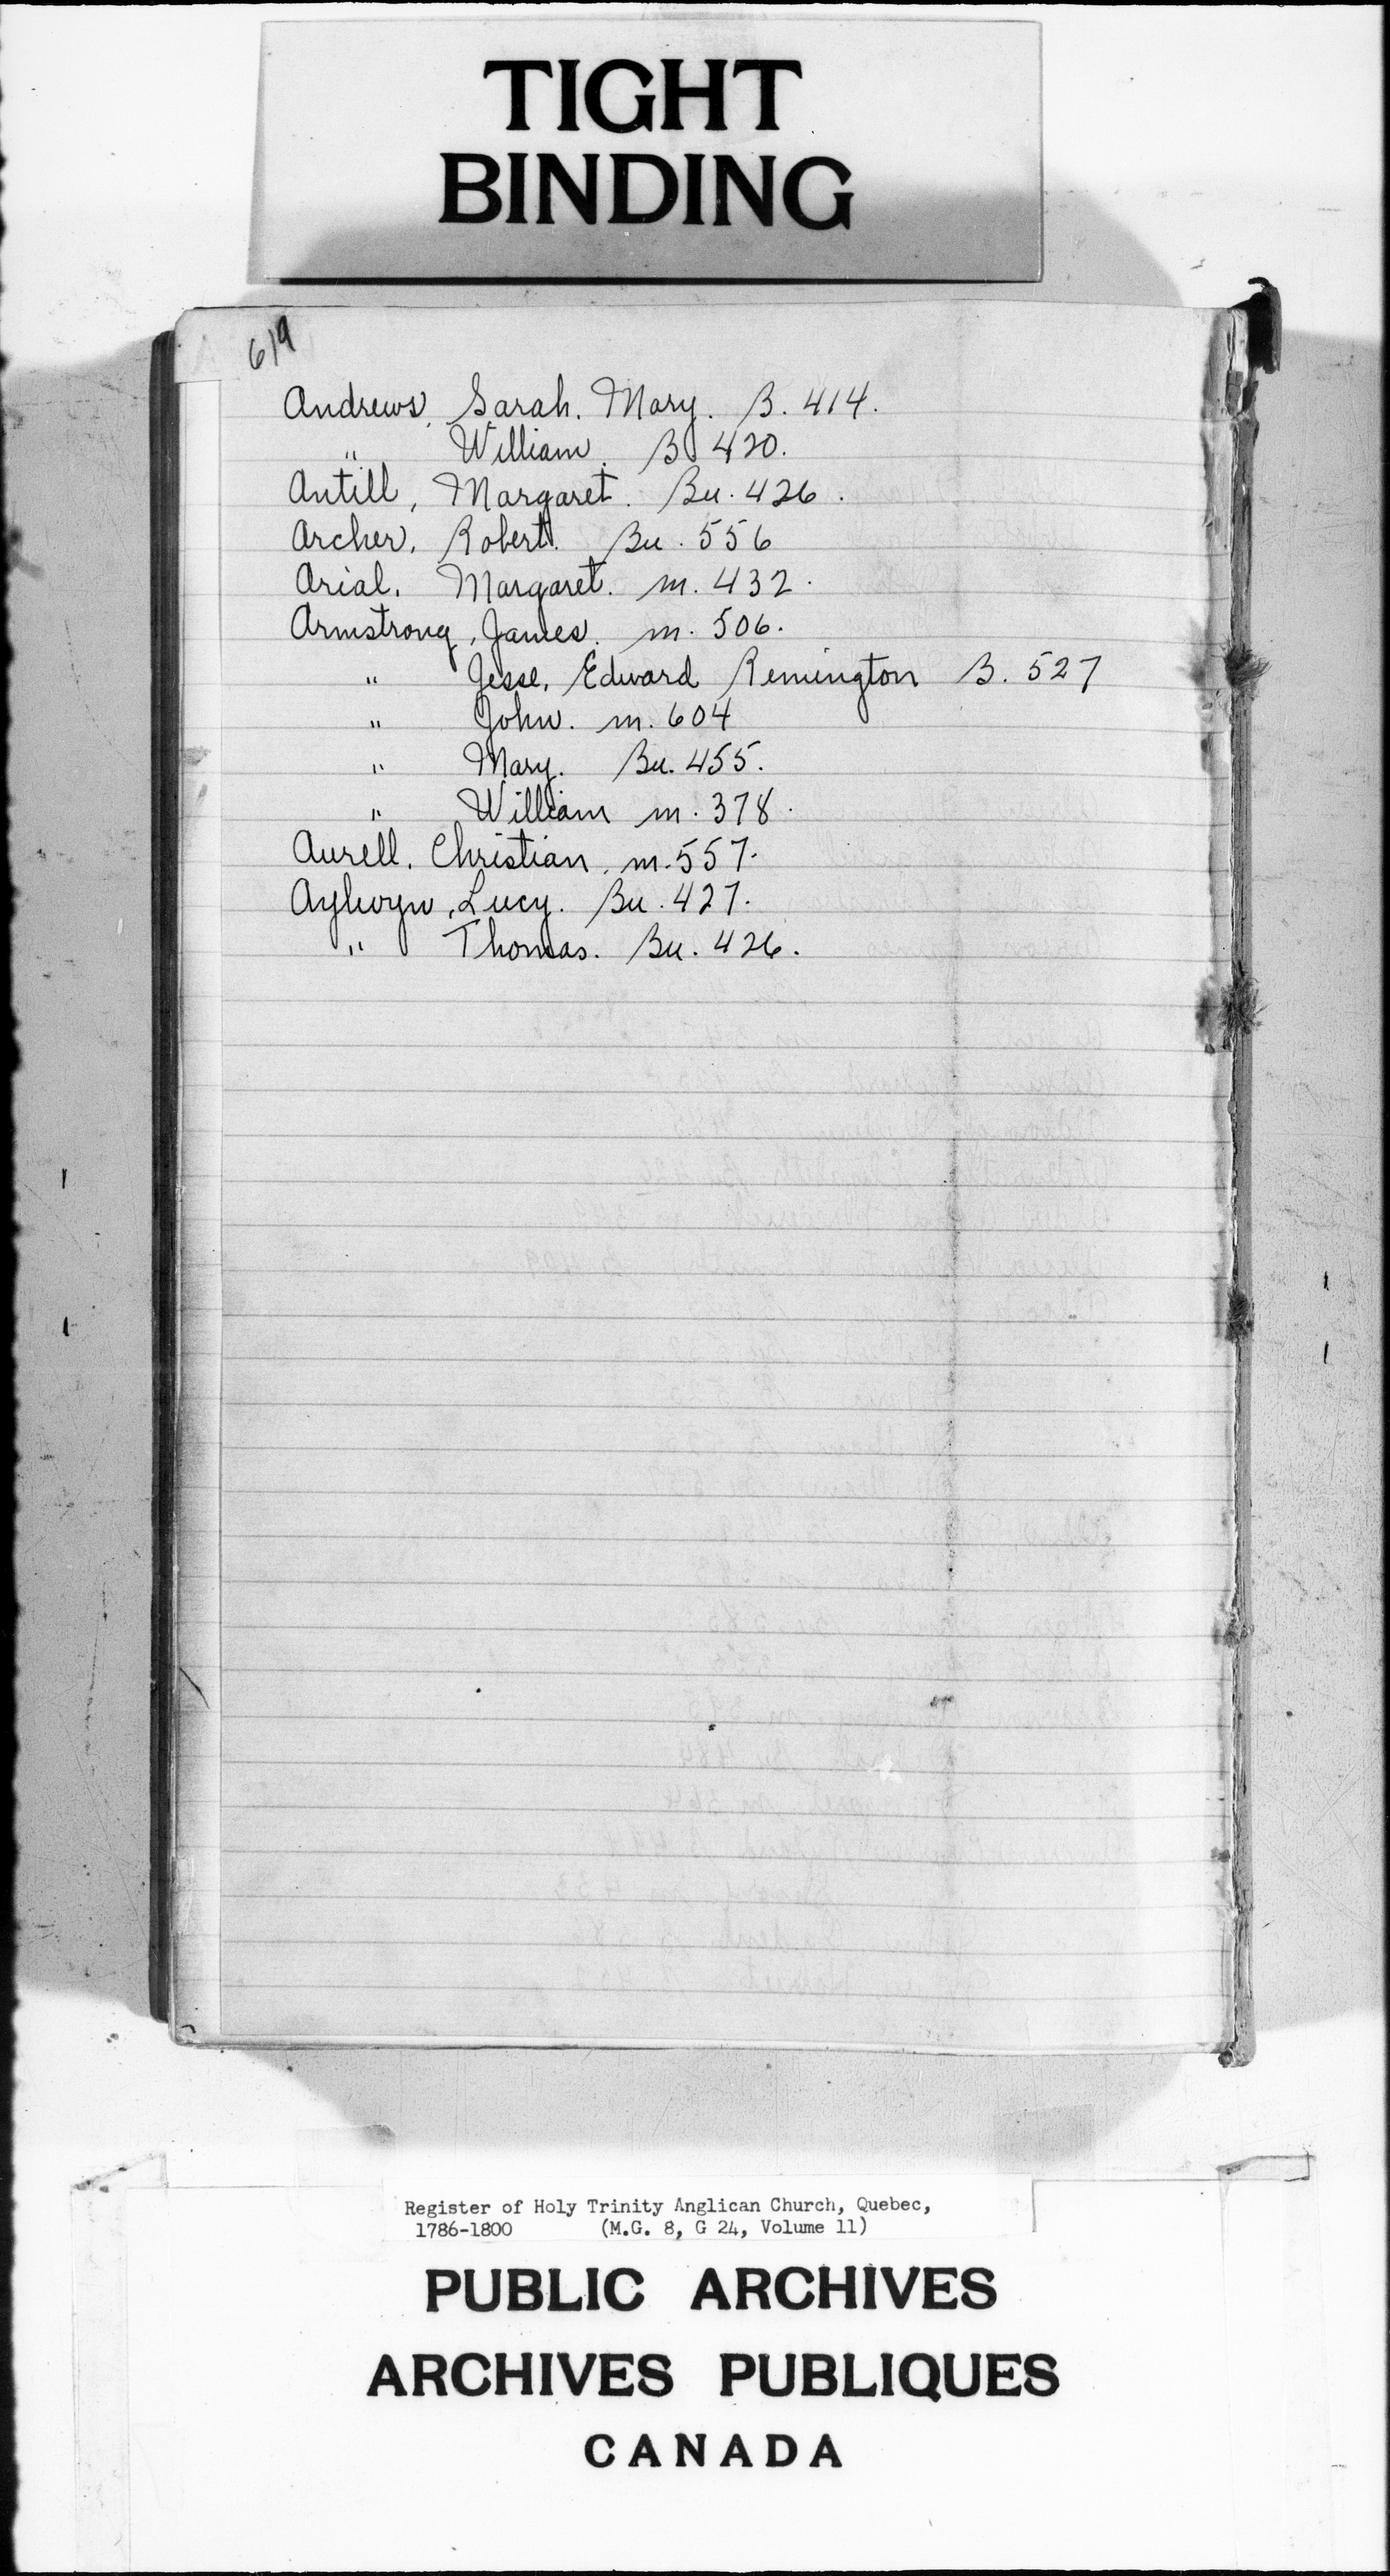 TIGHT
BINDING
619
Andrews, Sarah. Mary. B. 414.
" William. B 420.
Antill, Margaret. Bu. 426.
Archer. Robert. Bu. 556
Arial. Margaret. m. 432.
Armstrong, James. m. 506.
" Jesse. Edward Remington B. 527
" John. m. 604
" Mary. Bu. 455.
" William m. 378.
Aurell. Christian. m. 557.
Aylwyn, Lucy. Bu. 427.
" Thomas. Bu. 426.
Register of Holy Trinity Anglican Church, Quebec,
1786-1800 (M.G. 8, G 24, Volume 11)
PUBLIC ARCHIVES
ARCHIVES PUBLIQUES
CANADA